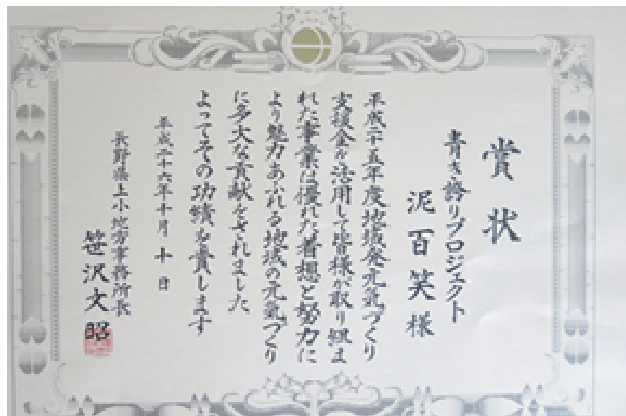 賞状
青き誇りプロジェクト
泥百笑様
平成二十五年度地域発元気づくり
支援金を活用して皆様が取り組ま
れた事業は優れた着想と努力に
より魅力あふれる地域の元気づくり
に多大な貢献をされました
よってその功績を賞します
平成二十六年十月十日
長野県上小地方事務所長
笹沢文昭